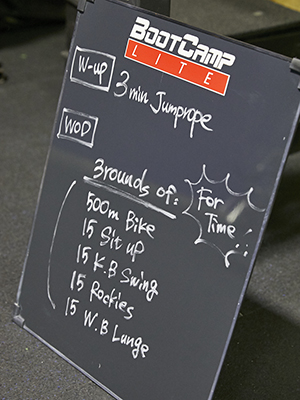 BOOTCAMP
LITE
W-up
3 min Jumprope
WOD
3rounds of:
For
Time!!
500m Bike
15 Sit up
15 K.B Swing
15 Rockies
15 W.B Lunge